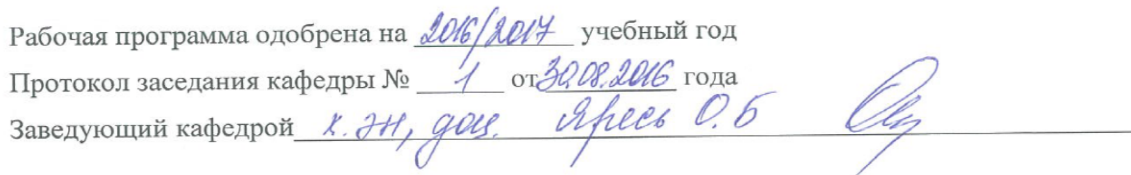 Рабочая программа одобрена на 2016/2017 учебный год
Протокол заседания кафедры № 1 от 30.08.2016 года
Заведующий кафедрой к. эн, доц. Яресь О.Б